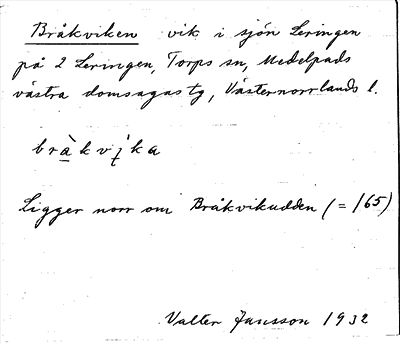 Bråkviken vik i sjön Leringen
på 2 Leringen, Torps sn, Medelpads
västra domsagas tg, Västernorrlands l.
bràkvika
Ligger norr om Bråkvikudden (= 165)
Valter Jansson 1932